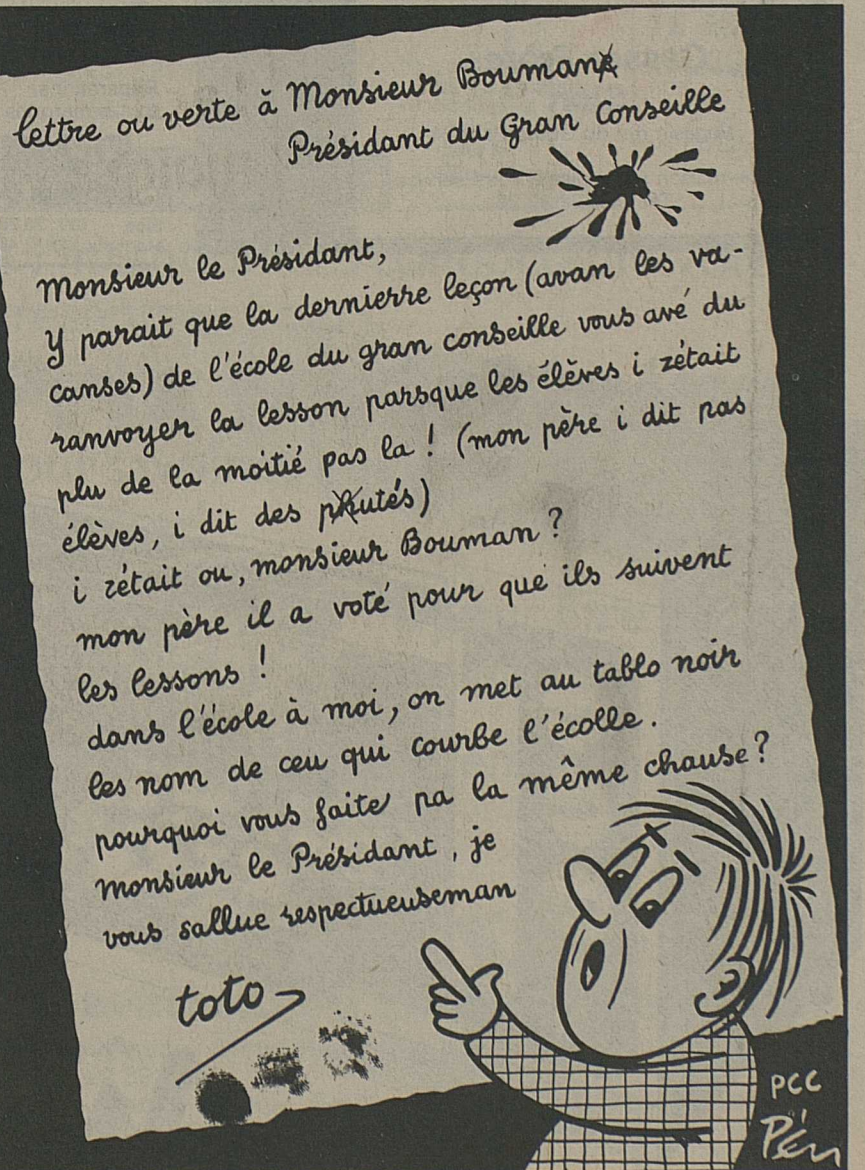 lettre ou verte à Monsieur Bouman
Présidant du Gran Conseille
Monsieur le Présidant,
Y parait que la dernierre leçon (avan les va-
canses) de l'école du gran conseille vous avé du
ranvoyer la lesson parsque les élèves i zétait
plu de la moitié pas la ! (mon père i dit pas
élèves, i dit des putés)
i zétait ou, monsieur Bouman ?
mon père il a voté pour que ils suivent
les lessons !
dans l'école à moi, on met au tablo noir
les nom de ceu qui courbe l'écolle.
pourquoi vous faite pa la même chause ?
Monsieur le Présidant, je
vous sallue respectueuseman
toto
PCC
Pén